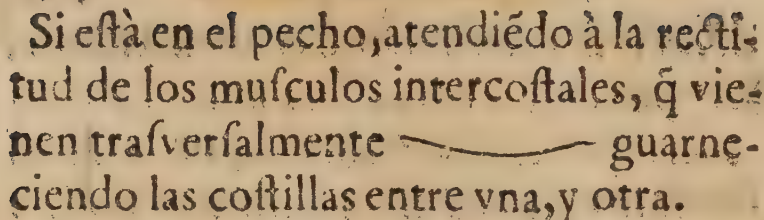 Si eſtà en el pecho, atendiẽdo à la recti-
tud de los muſculos intercoſtales, q̃ vie-
nen traſverſalmente guarne-
ciendo las coſtillas entre vna, y otra.